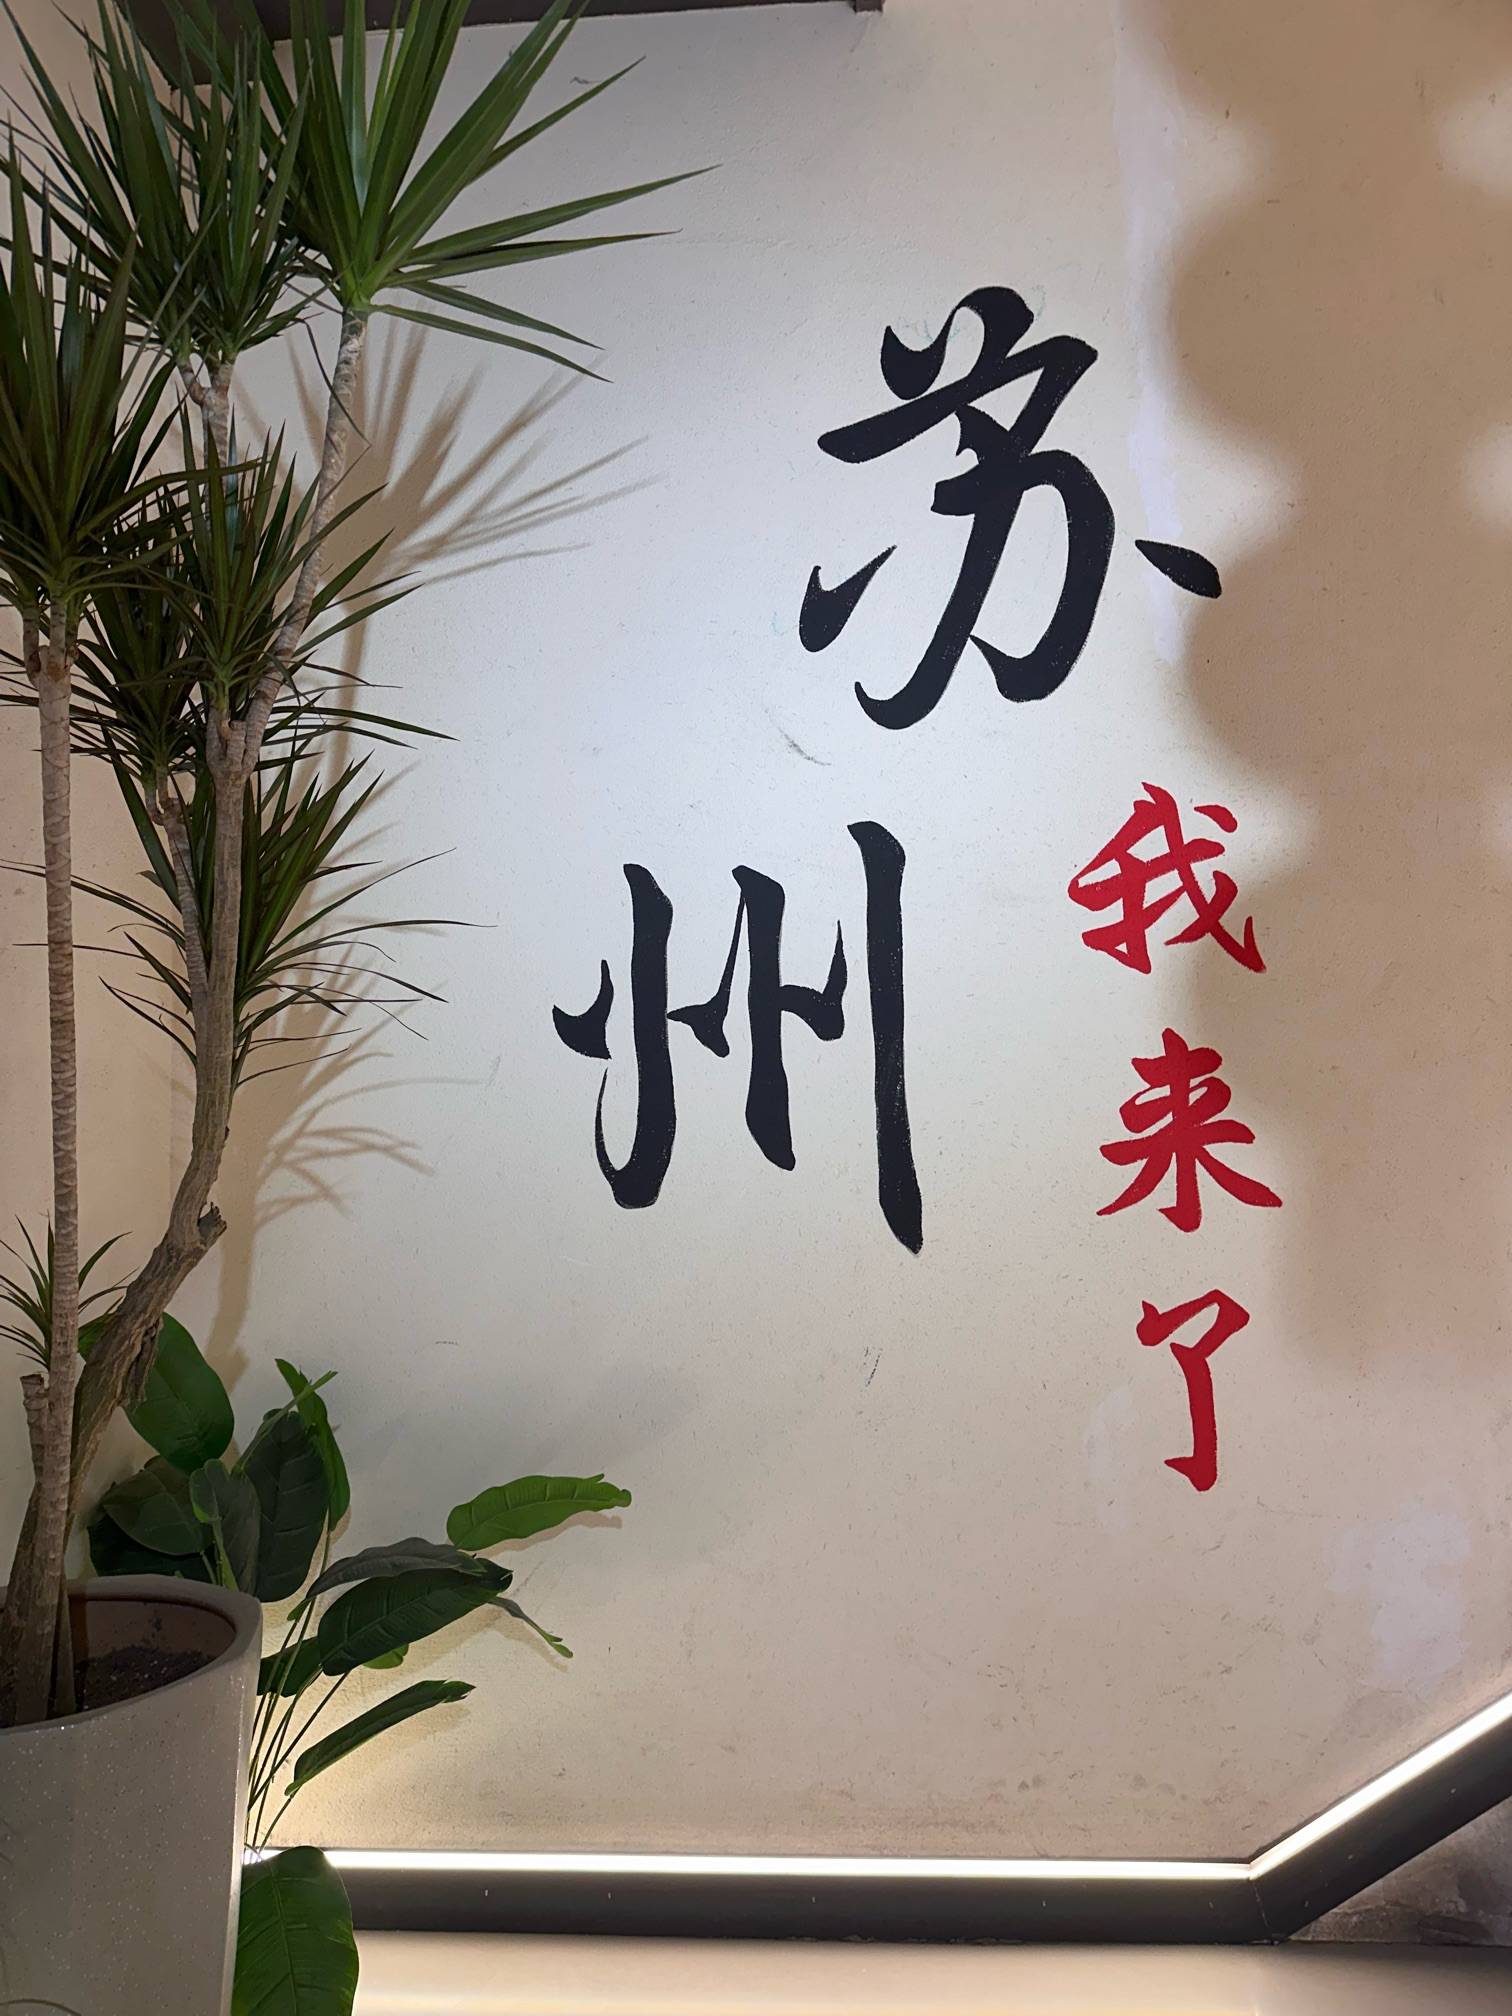 苏州
我来了